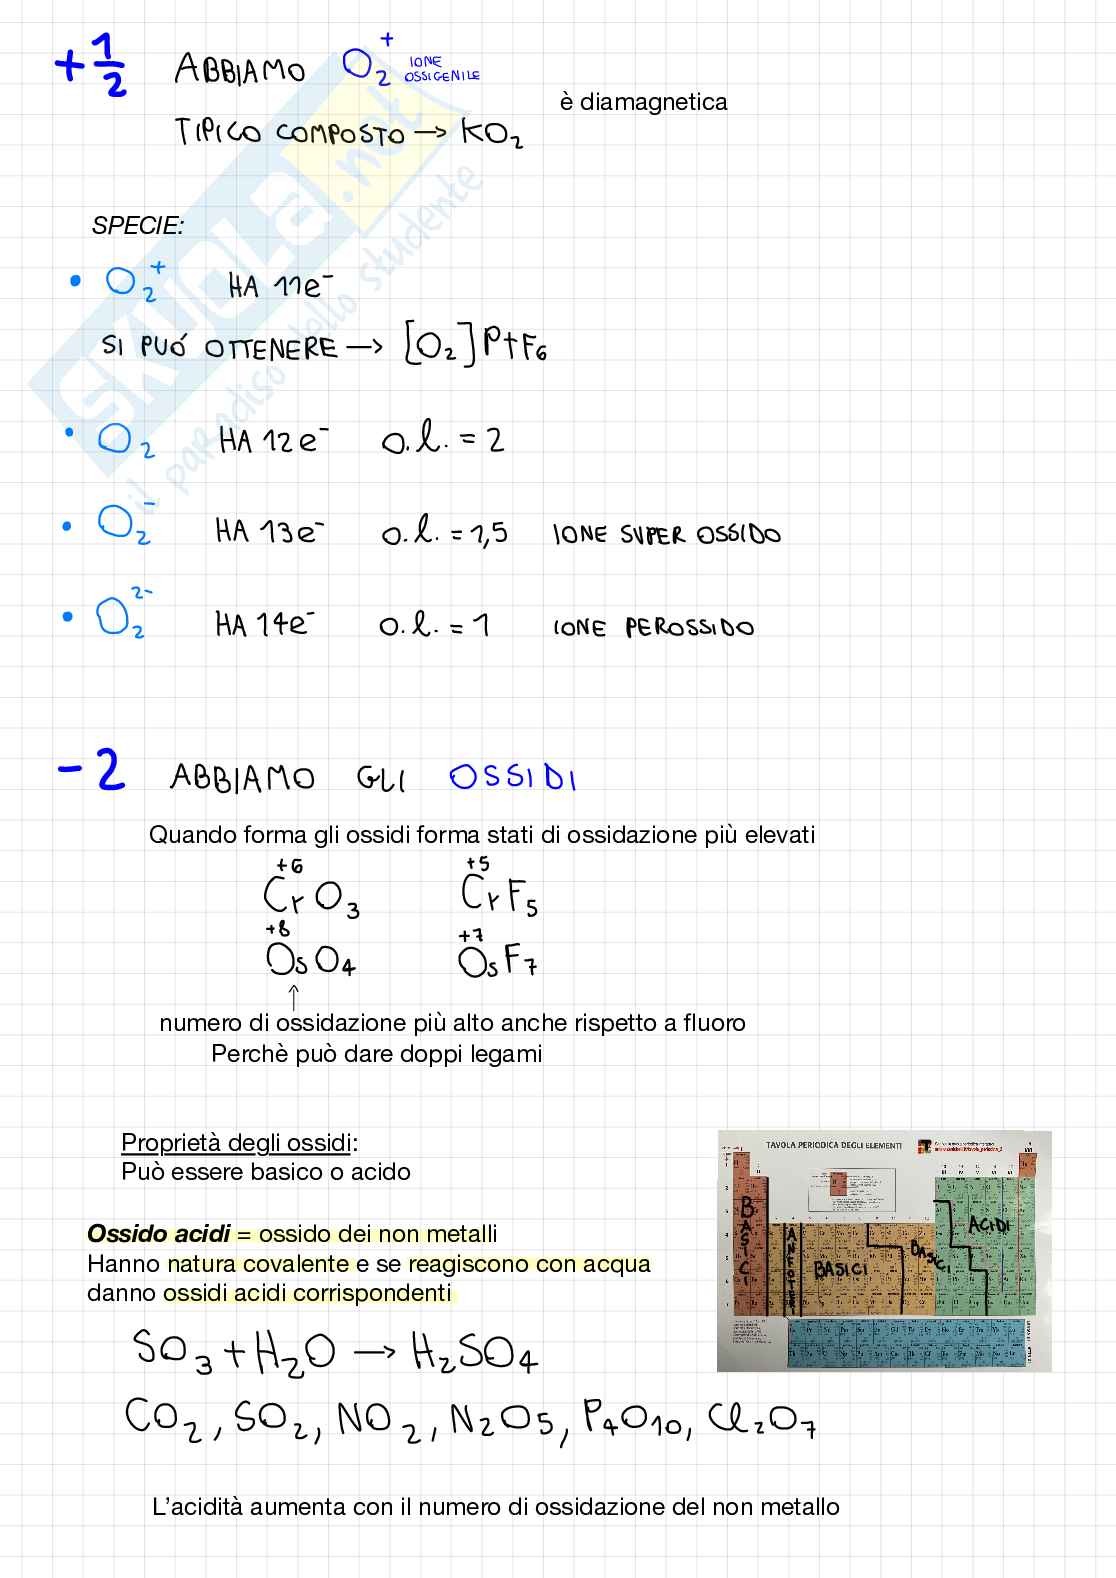 +1/2 ABBIAMO O₂⁺ IONE OSSIGENILE
è diamagnetica
TIPICO COMPOSTO → KO₂
SPECIE:
• O₂⁺ HA 11e⁻
SI PUÓ OTTENERE → [O₂]PtF₆
• O₂ HA 12e⁻ o.l. = 2
• O₂⁻ HA 13e⁻ o.l. = 1,5 IONE SUPER OSSIDO
• O₂²⁻ HA 14e⁻ o.l. = 1 IONE PEROSSIDO
-2 ABBIAMO GLI OSSIDI
Quando forma gli ossidi forma stati di ossidazione più elevati
+6 +5
CrO₃ CrF₅
+8 +7
OsO₄ OsF₇
↑
numero di ossidazione più alto anche rispetto a fluoro
Perchè può dare doppi legami
Proprietà degli ossidi:
Può essere basico o acido
TAVOLA PERIODICA DEGLI ELEMENTI
BASICI
ANFOTERI
BASICI
BASICI
ACIDI
Ossido acidi = ossido dei non metalli
Hanno natura covalente e se reagiscono con acqua
danno ossidi acidi corrispondenti
SO₃ + H₂O → H₂SO₄
CO₂, SO₂, NO₂, N₂O₅, P₄O₁₀, Cl₂O₇
L'acidità aumenta con il numero di ossidazione del non metallo
SKUOLA.net
il paradiso dello studente